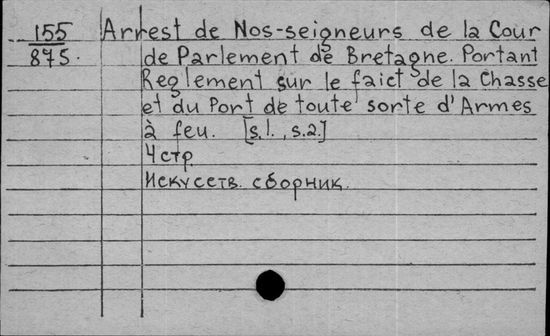 155 Arrest de Nos-seigneurs de la Cour
875. de Parlement de Bretagne. Portant
Reglement sur le faict de la Chasse
et du Port de toute sorte d'Armes
à feu. [s.l., s.a.]
4 стр.
Искусств. сборник.